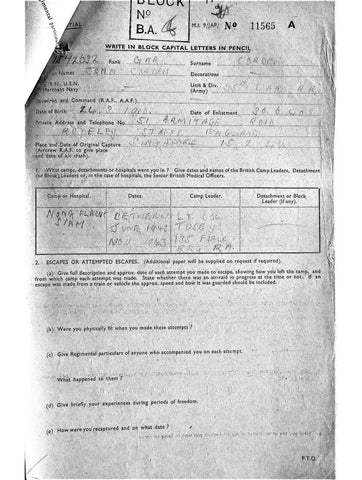 BLOCK
No
B.A.
M.I. 9/JAP/ No 11565 A
WRITE IN BLOCK CAPITAL LETTERS IN PENCIL
Rank GNR. Surname CORDEN
Names JOHN Decorations -
Unit & Div. (Army) R.A.
Merchant Navy
Squadron and Command (R.A.F., A.A.F.)
Date of Birth Date of Enlistment 20.6.40
Private Address and Telephone No. 51 ARMITAGE ROAD
STAFFS ENGLAND
Place and Date of Original Capture SINGAPORE 15.2.42
(Aircrew R.A.F. to give place
and date of a/c crash).
1. What camps, detachments or hospitals were you in ? Give dates and names of the British Camp Leaders, Detachment
(or Block) Leaders or, in the case of hospitals, the Senior British Medical Officers.
Camp or Hospital. Dates. Camp Leader. Detachment or Block Leader (if any).
NONG PLADUC BETWEEN LT. COL.
SIAM JUNE 1943 TOOEY
NOV 1943 135 FIELD
R.A.
2. ESCAPES OR ATTEMPTED ESCAPES. (Additional paper will be supplied on request if required).
(a) Give full description and approx. date of each attempt you made to escape, showing how you left the camp, and
from which camp each attempt was made. State whether there was an air-raid in progress at the time or not. If an
escape was made from a train or vehicle the approx. speed and how it was guarded should be included.
(b) Were you physically fit when you made these attempts ?
(c) Give Regimental particulars of anyone who accompanied you on each attempt.
What happened to them ?
(d) Give briefly your experiences during periods of freedom.
(e) How were you recaptured and on what date ?
P.T.O.